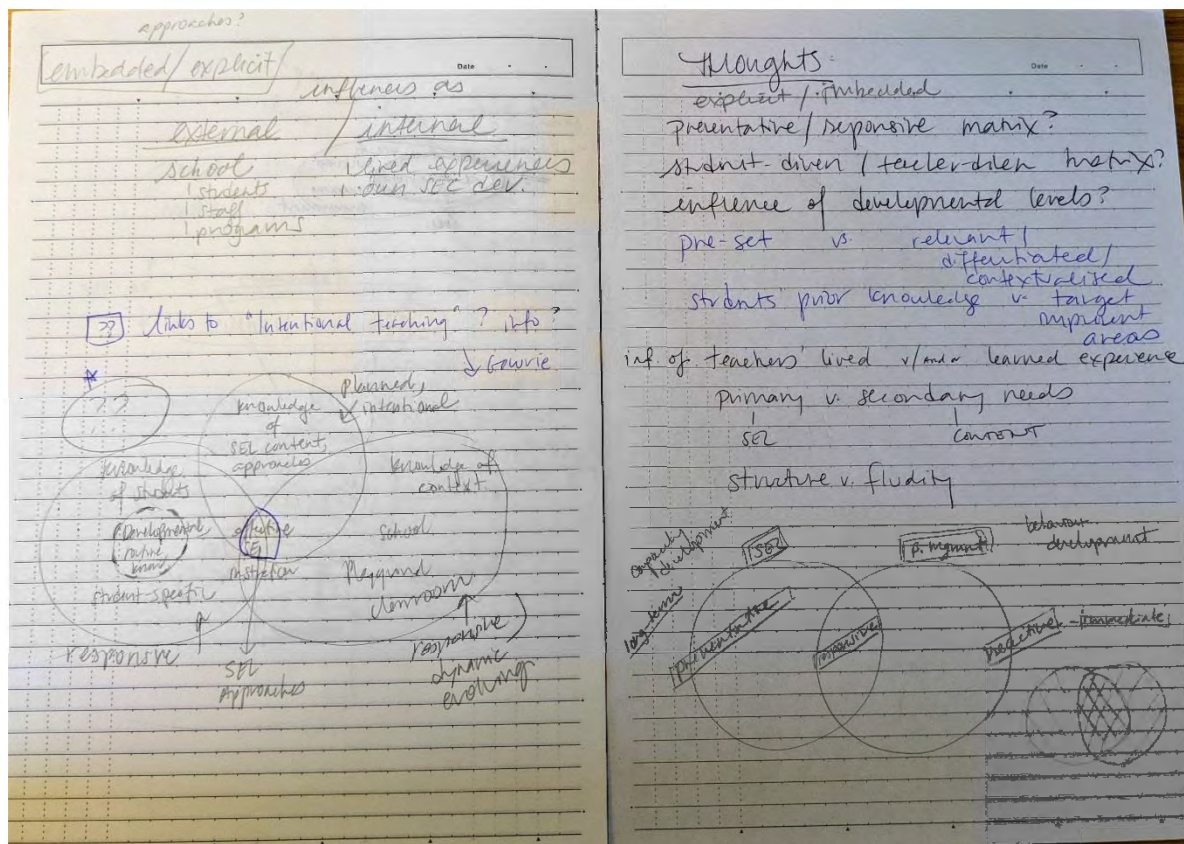 approaches?
embedded/explicit/
Date
influences as
external / internal
school
! students
! staff
! programs
! lived experiences
! own SEC dev.
?? links to "Intentional teaching"? info?
↓ Gowrie
* ???
planned, intentional
knowledge
of
SEL content,
approaches
knowledge
of students
Developmental
routine
know
student specific
responsive
knowledge of
context
school
playground
classroom
effective
SEL
instruction
SEL
Approaches
responsive
dynamic
evolving
Thoughts:
Date
explicit / imbedded
preventative / responsive matrix?
student-driven / teacher-driven matrix?
influence of developmental levels?
pre-set vs. relevant/
differentiated/
contextualised
students' prior knowledge v. target
improvement
areas
inf. of teachers' lived v/and/or learned experience
primary v. secondary needs
SEL
CONTENT
structure v. fludity
capacity
development
long-term
SEL
B. mgmnt
behaviour
development
preventative
responsive
reactive - immediate